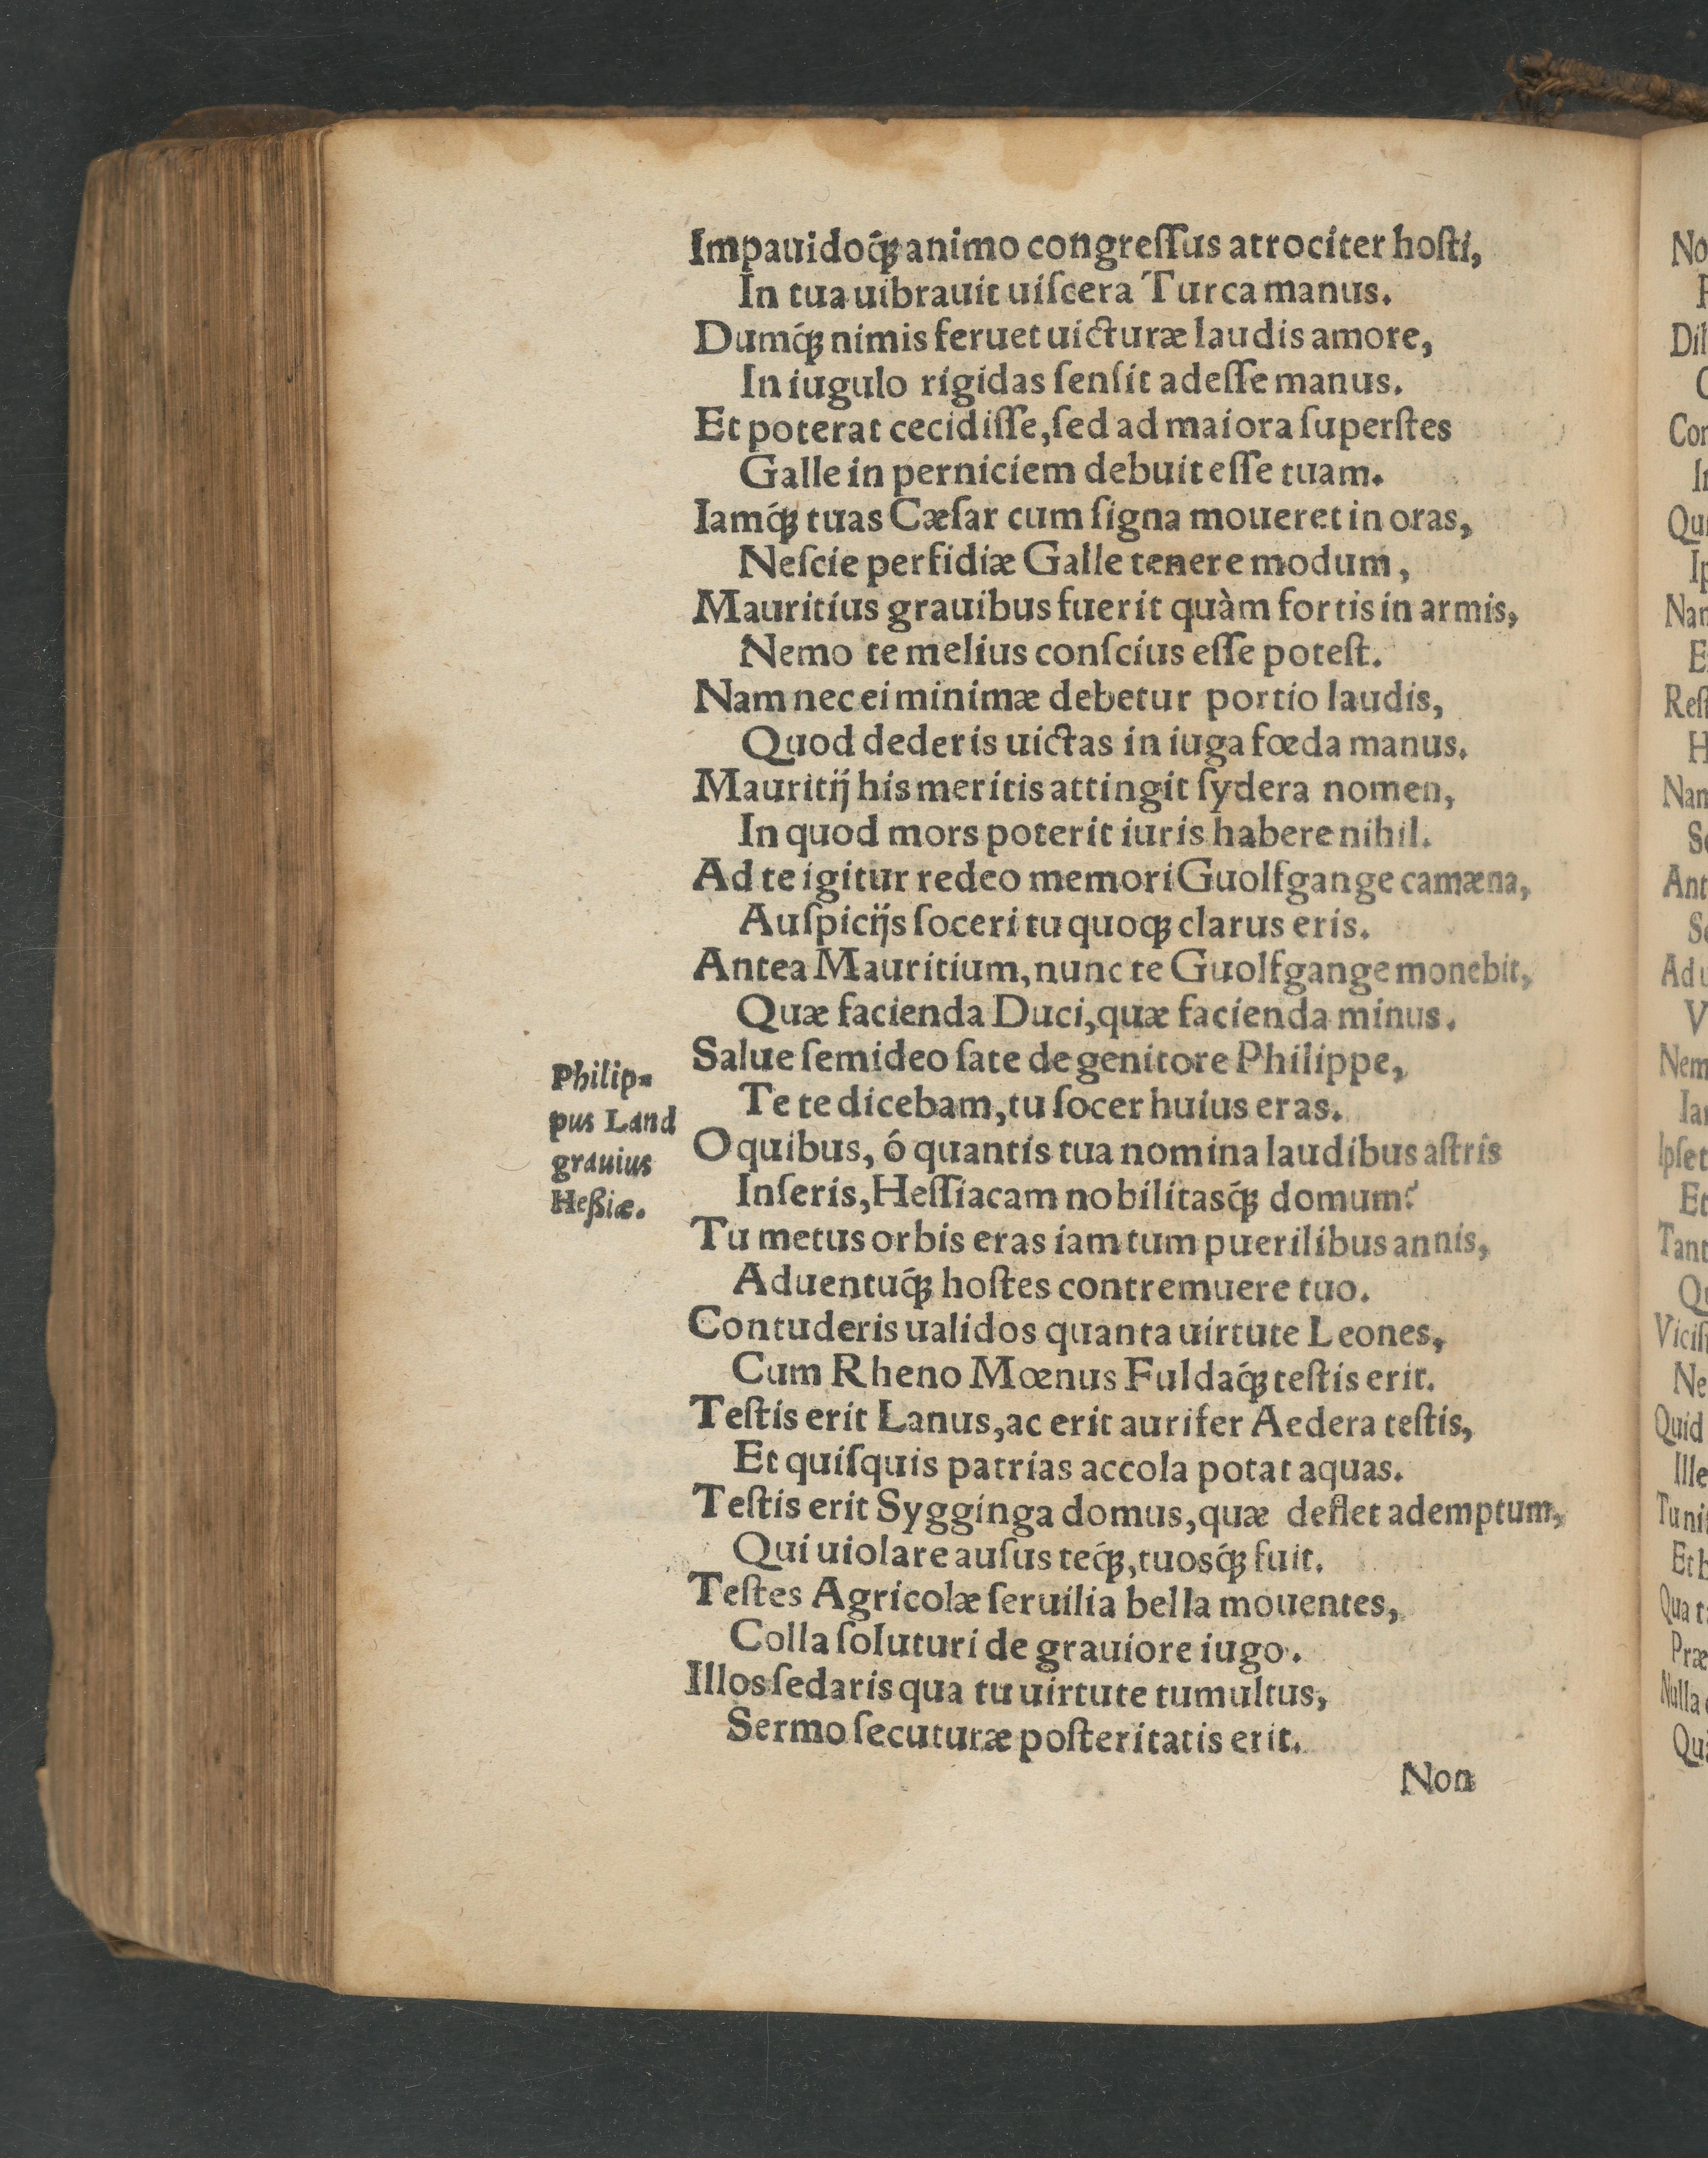 Impauidoq́ꝫ animo congreſſus atrociter hoſti,
In tua uibrauit uiſcera Turca manus.
Dumq́ꝫ nimis feruet uicturæ laudis amore,
In iugulo rigidas ſenſit adeſſe manus.
Et poterat cecidiſſe, ſed ad maiora ſuperſtes
Galle in perniciem debuit eſſe tuam.
Iamq́ꝫ tuas Cæſar cum ſigna moueret in oras,
Neſcie perfidiæ Galle tenere modum,
Mauritius grauibus fuerit quàm fortis in armis,
Nemo te melius conſcius eſſe poteſt.
Nam nec ei minimæ debetur portio laudis,
Quod dederis uictas in iuga fœda manus.
Mauritij his meritis attingit ſydera nomen,
In quod mors poterit iuris habere nihil.
Ad te igitur redeo memori Guolfgange camæna,
Auſpicijs ſoceri tu quoqꝫ clarus eris.
Antea Mauritium, nunc te Guolfgange monebit,
Quæ facienda Duci, quæ facienda minus.
Philip-
pus Land
grauius
Heßiæ.
Salue ſemideo ſate de genitore Philippe,
Te te dicebam, tu ſocer huius eras.
O quibus, ó quantis tua nomina laudibus aſtris
Inſeris, Heſſiacam nobilitasq́ꝫ domum?
Tu metus orbis eras iam tum puerilibus annis,
Aduentuq́ꝫ hoſtes contremuere tuo.
Contuderis ualidos quanta uirtute Leones,
Cum Rheno Mœnus Fuldaq́ꝫ teſtis erit.
Teſtis erit Lanus, ac erit aurifer Aedera teſtis,
Et quiſquis patrias accola potat aquas.
Teſtis erit Sygginga domus, quæ deflet ademptum,
Qui uiolare auſus teq́ꝫ, tuosq́ꝫ fuit.
Teſtes Agricolæ ſeruilia bella mouentes,
Colla ſoluturi de grauiore iugo.
Illos ſedaris qua tu uirtute tumultus,
Sermo ſecuturæ poſteritatis erit.
Non